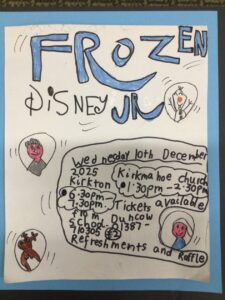 FROZEN
DiSNEY JR
Wednesday 10th December
2025 Kirkmahoe church
Kirkton 1:30pm - 2:30pm
6:30pm - Tickets available
7.30pm Duncow
from
School 01387-
710305 £2
Refreshments and Raffle